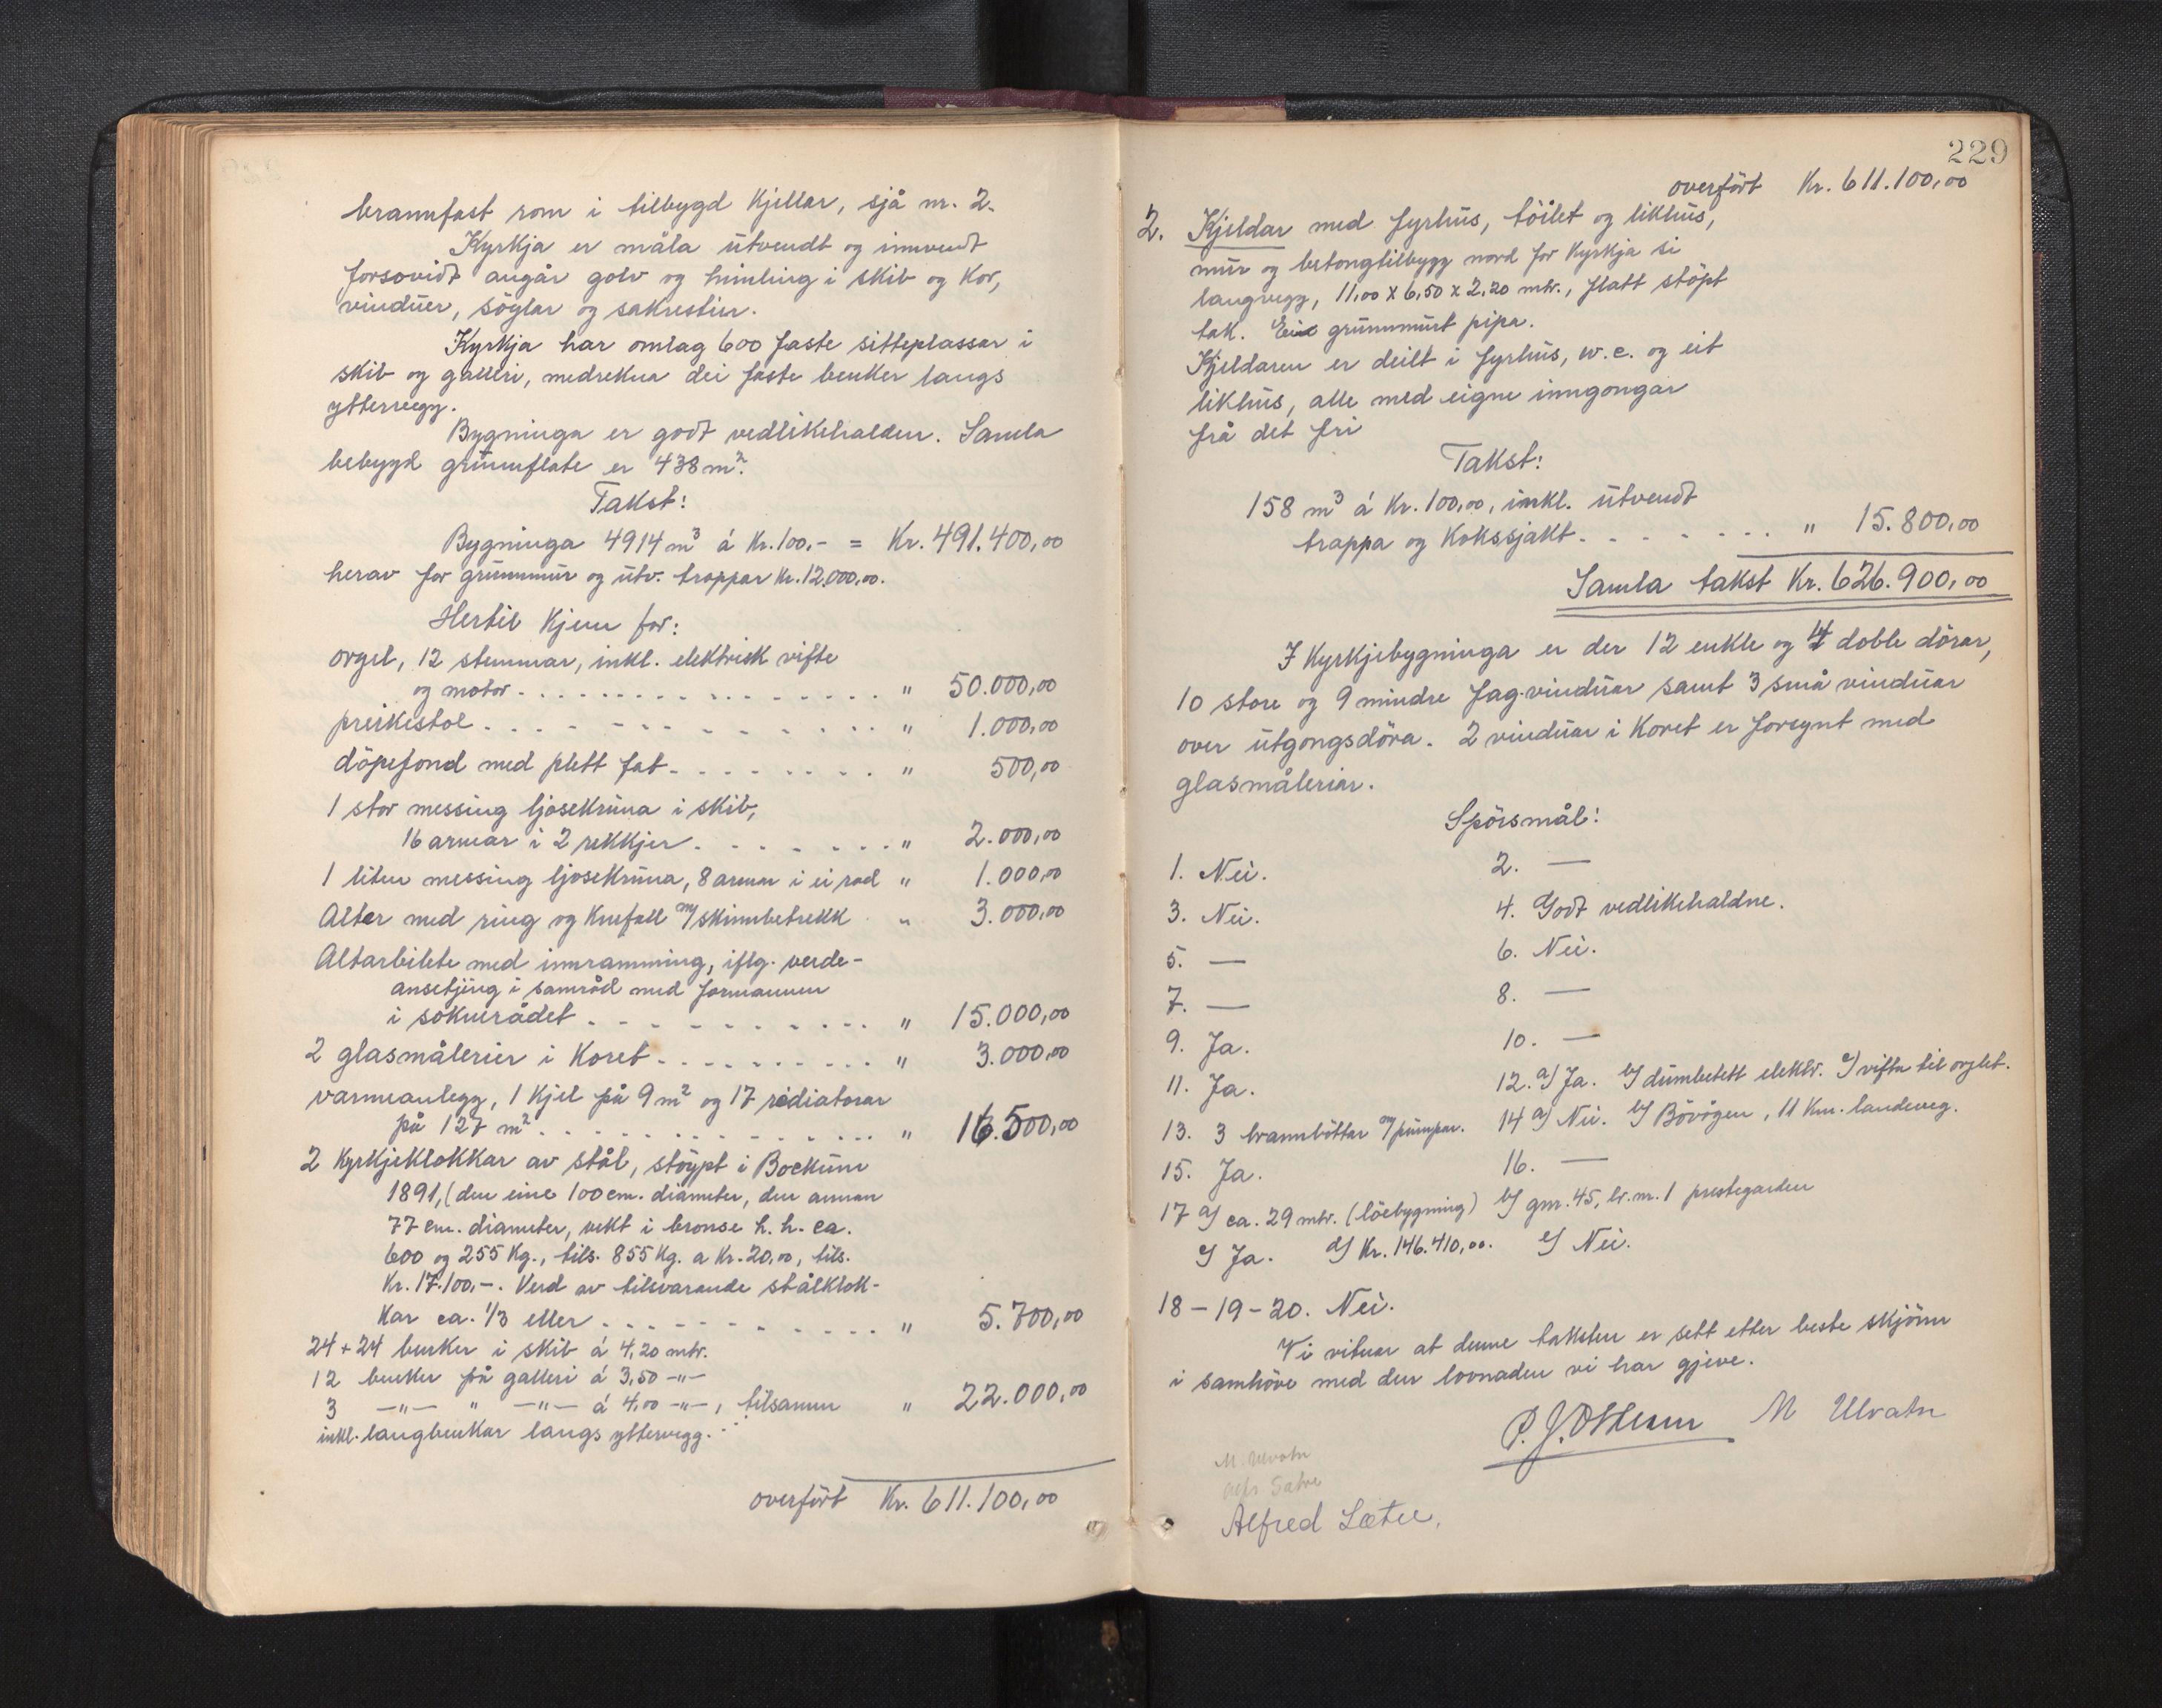 brannfast rom i tilbygd kjellar, sjå nr. 2.
Kyrkja er måla utvendt og innvendt
forsovidt angår golv og himling i skib og kor,
vinduer, söylar og sakrestier.
Kyrkja har omlag 600 faste sitteplassar i
skib og galleri, medrekna dei faste benker langs
yttervegg.
Bygninga er godt vedlikehalden. Samla
bebygd grunnflate er 438 m².
Takst:
Bygninga 4914 m³ á kr. 100,- = Kr. 491.400,00
herav for grunnmur og utv. trappar kr. 12.000,00.
Hertil kjem for:
orgel, 12 stemmar, inkl. elektrisk vifte
og motor. . . . . . . . . . . . . . . . " 50.000,00
preikestol. . . . . . . . . . . . . . . " 1.000,00
döpefond med plett fat. . . . . . . . . " 500,00
1 stor messing ljosekruna i skib,
16 armar i 2 rekkjer. . . . . . . . " 2.000,00
1 liten messing ljosekruna, 8 armar i ei rad " 1.000,00
Alter med ring og knefall m/skinnbetrekk " 3.000,00
Altarbilete med innramming, iflg. verde-
ansetjing i samråd med formannen
i soknerådet . . . . . . . . . . . " 15.000,00
2 glasmålerier i koret. . . . . . . . . . " 3.000,00
varmeanlegg, 1 kjel på 9 m² og 17 radiatorar
på 127 m². . . . . . . . . . . . . . . " 16.500,00
2 kyrkjeklokkar av stål, stöypt i Bockum
1891, (den eine 100 cm. diameter, den annan
77 cm. diameter, vekt i bronse h. h. ca.
600 og 255 kg., tils. 855 kg. a kr. 20,00, tils.
kr. 17.100,-. Verd av tilsvarande stålklok-
kar ca. 1/3 eller . . . . . . . . . . . . " 5.700,00
24 + 24 benker i skib á 4,20 mtr.
12 benker på galleri á 3,50 -"-
3 -"- " -"- á 4,00 -"-, tilsamen " 22.000,00
inkl. langbenkar langs yttervegg. . .
overfört Kr. 611.100,00
229
overfört Kr. 611.100,00
2. Kjeldar med fyrhus, töilet og likhus,
mur og betongtilbygg nord for kyrkja si
langvegg, 11,00 x 6,50 x 2,20 mtr., flatt stöpt
tak. Ein grunnmurt pipe.
Kjeldaren er deilt i fyrhus, w.c. og eit
likhus, alle med eigne inngongar
frå det fri
Takst:
158 m³ á kr. 100,00, inkl. utvendt
trappa og kokssjakt. . . . . . . . " 15.800,00
Samla takst Kr. 626.900,00
I kyrkjebygninga er der 12 enkle og 4 doble dörar,
10 store og 9 mindre fag vinduar samt 3 små vinduar
over utgongsdöra. 2 vinduar i koret er forsynt med
glasmåleriar.
Spörsmål:
1. Nei. 2. —
3. Nei. 4. Godt vedlikehaldne.
5. — 6. Nei.
7. — 8. —
9. Ja. 10. —
11. Ja. 12. a/ Ja. b/ dumbetett elektr. c/ vifta til orglet.
13. 3 brannböttar m/pumpar. 14 a/ Nei. b/ Bövågen, 11 km. landeveg.
15. Ja. 16. —
17 a/ ca. 29 mtr. (löebygning) b/ gnr. 45, br. nr. 1 prestegarden
c/ Ja. d/ Kr. 146.410,00. e/ Nei.
18 – 19 – 20. Nei.
Vi vitnar at denne taksten er sett etter beste skjönn
i samhöve med den lovnaden vi har gjeve.
M Ulvatn
M. Ulvatn
Alfred Sætre.